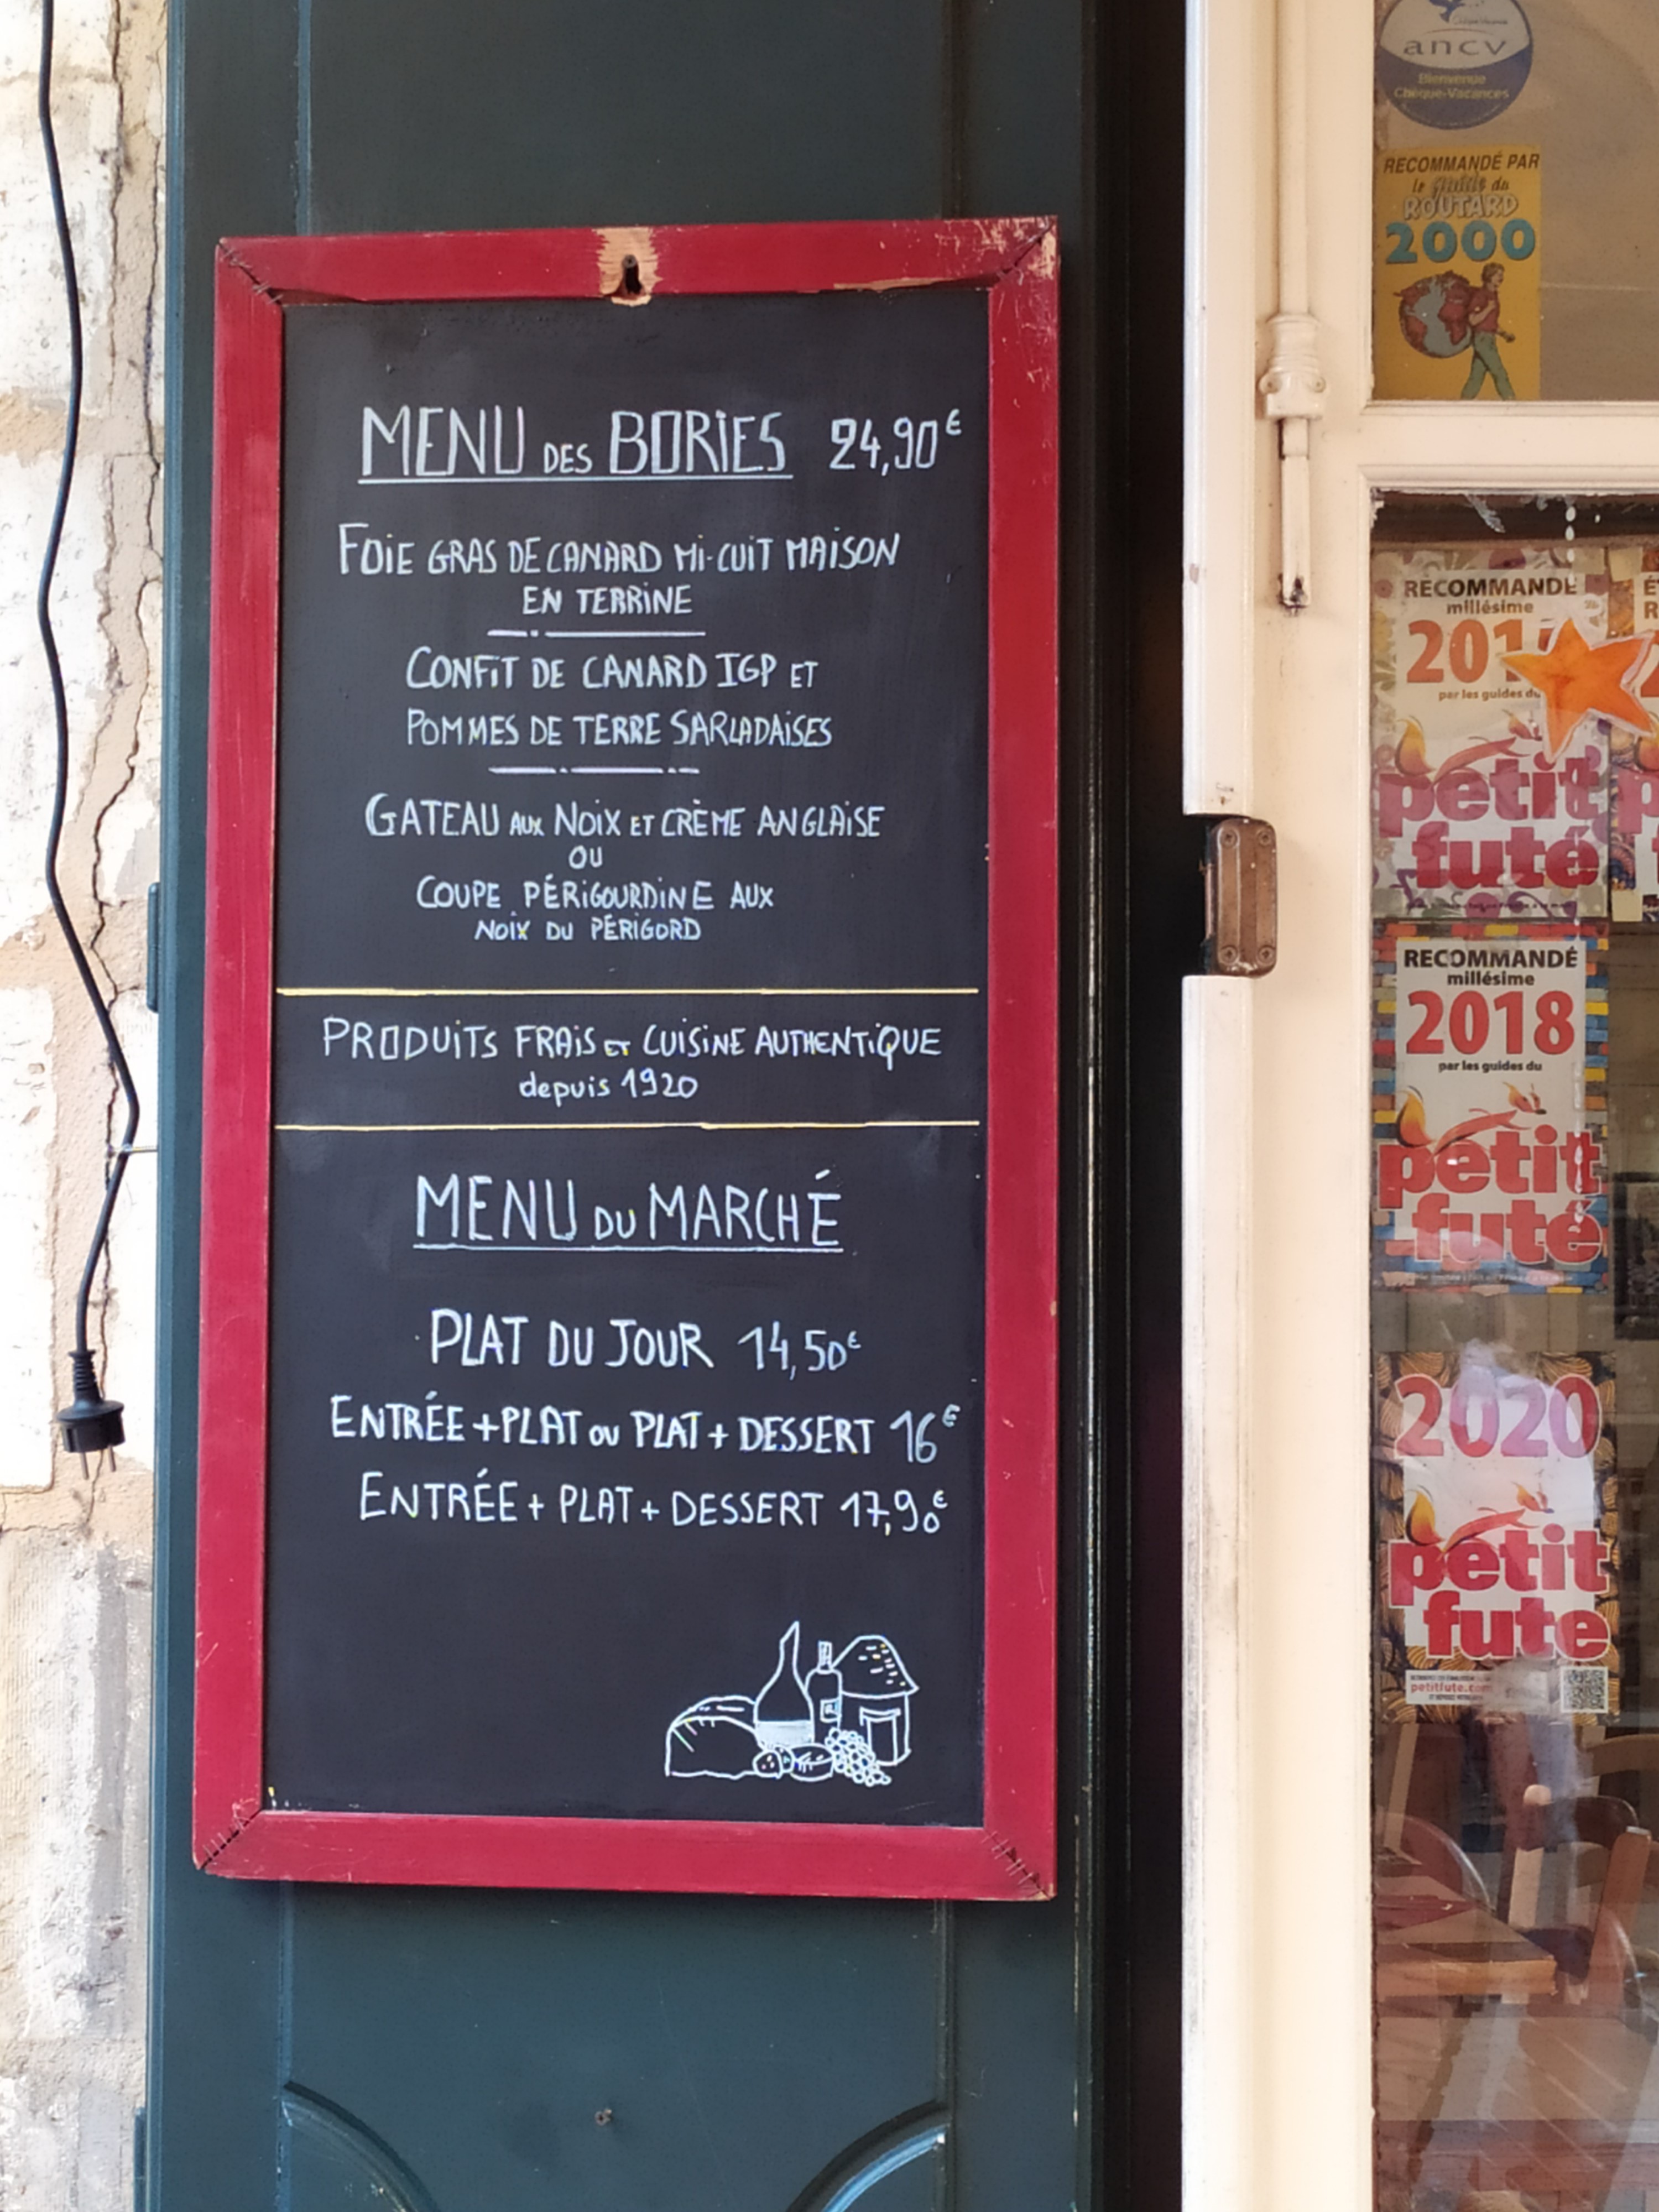 MENU DES BORIES 24,90€
FOIE GRAS DE CANARD MI-CUIT MAISON
EN TERRINE
CONFIT DE CANARD IGP ET
POMMES DE TERRE SARLADAISES
GATEAU AUX NOIX ET CRÈME ANGLAISE
OU
COUPE PÉRIGOURDINE AUX
NOIX DU PÉRIGORD
PRODUITS FRAIS ET CUISINE AUTHENTIQUE
depuis 1920
MENU DU MARCHÉ
PLAT DU JOUR 14,50€
ENTRÉE + PLAT OU PLAT + DESSERT 16€
ENTRÉE + PLAT + DESSERT 17,90€
ancv
Bienvenue
Chèque-Vacances
RECOMMANDÉ PAR
le guide du
ROUTARD
2000
RECOMMANDÉ
millésime
201
par les guides du
petit
futé
RECOMMANDÉ
millésime
2018
par les guides du
petit
futé
2020
petit
fute
petitfute.com